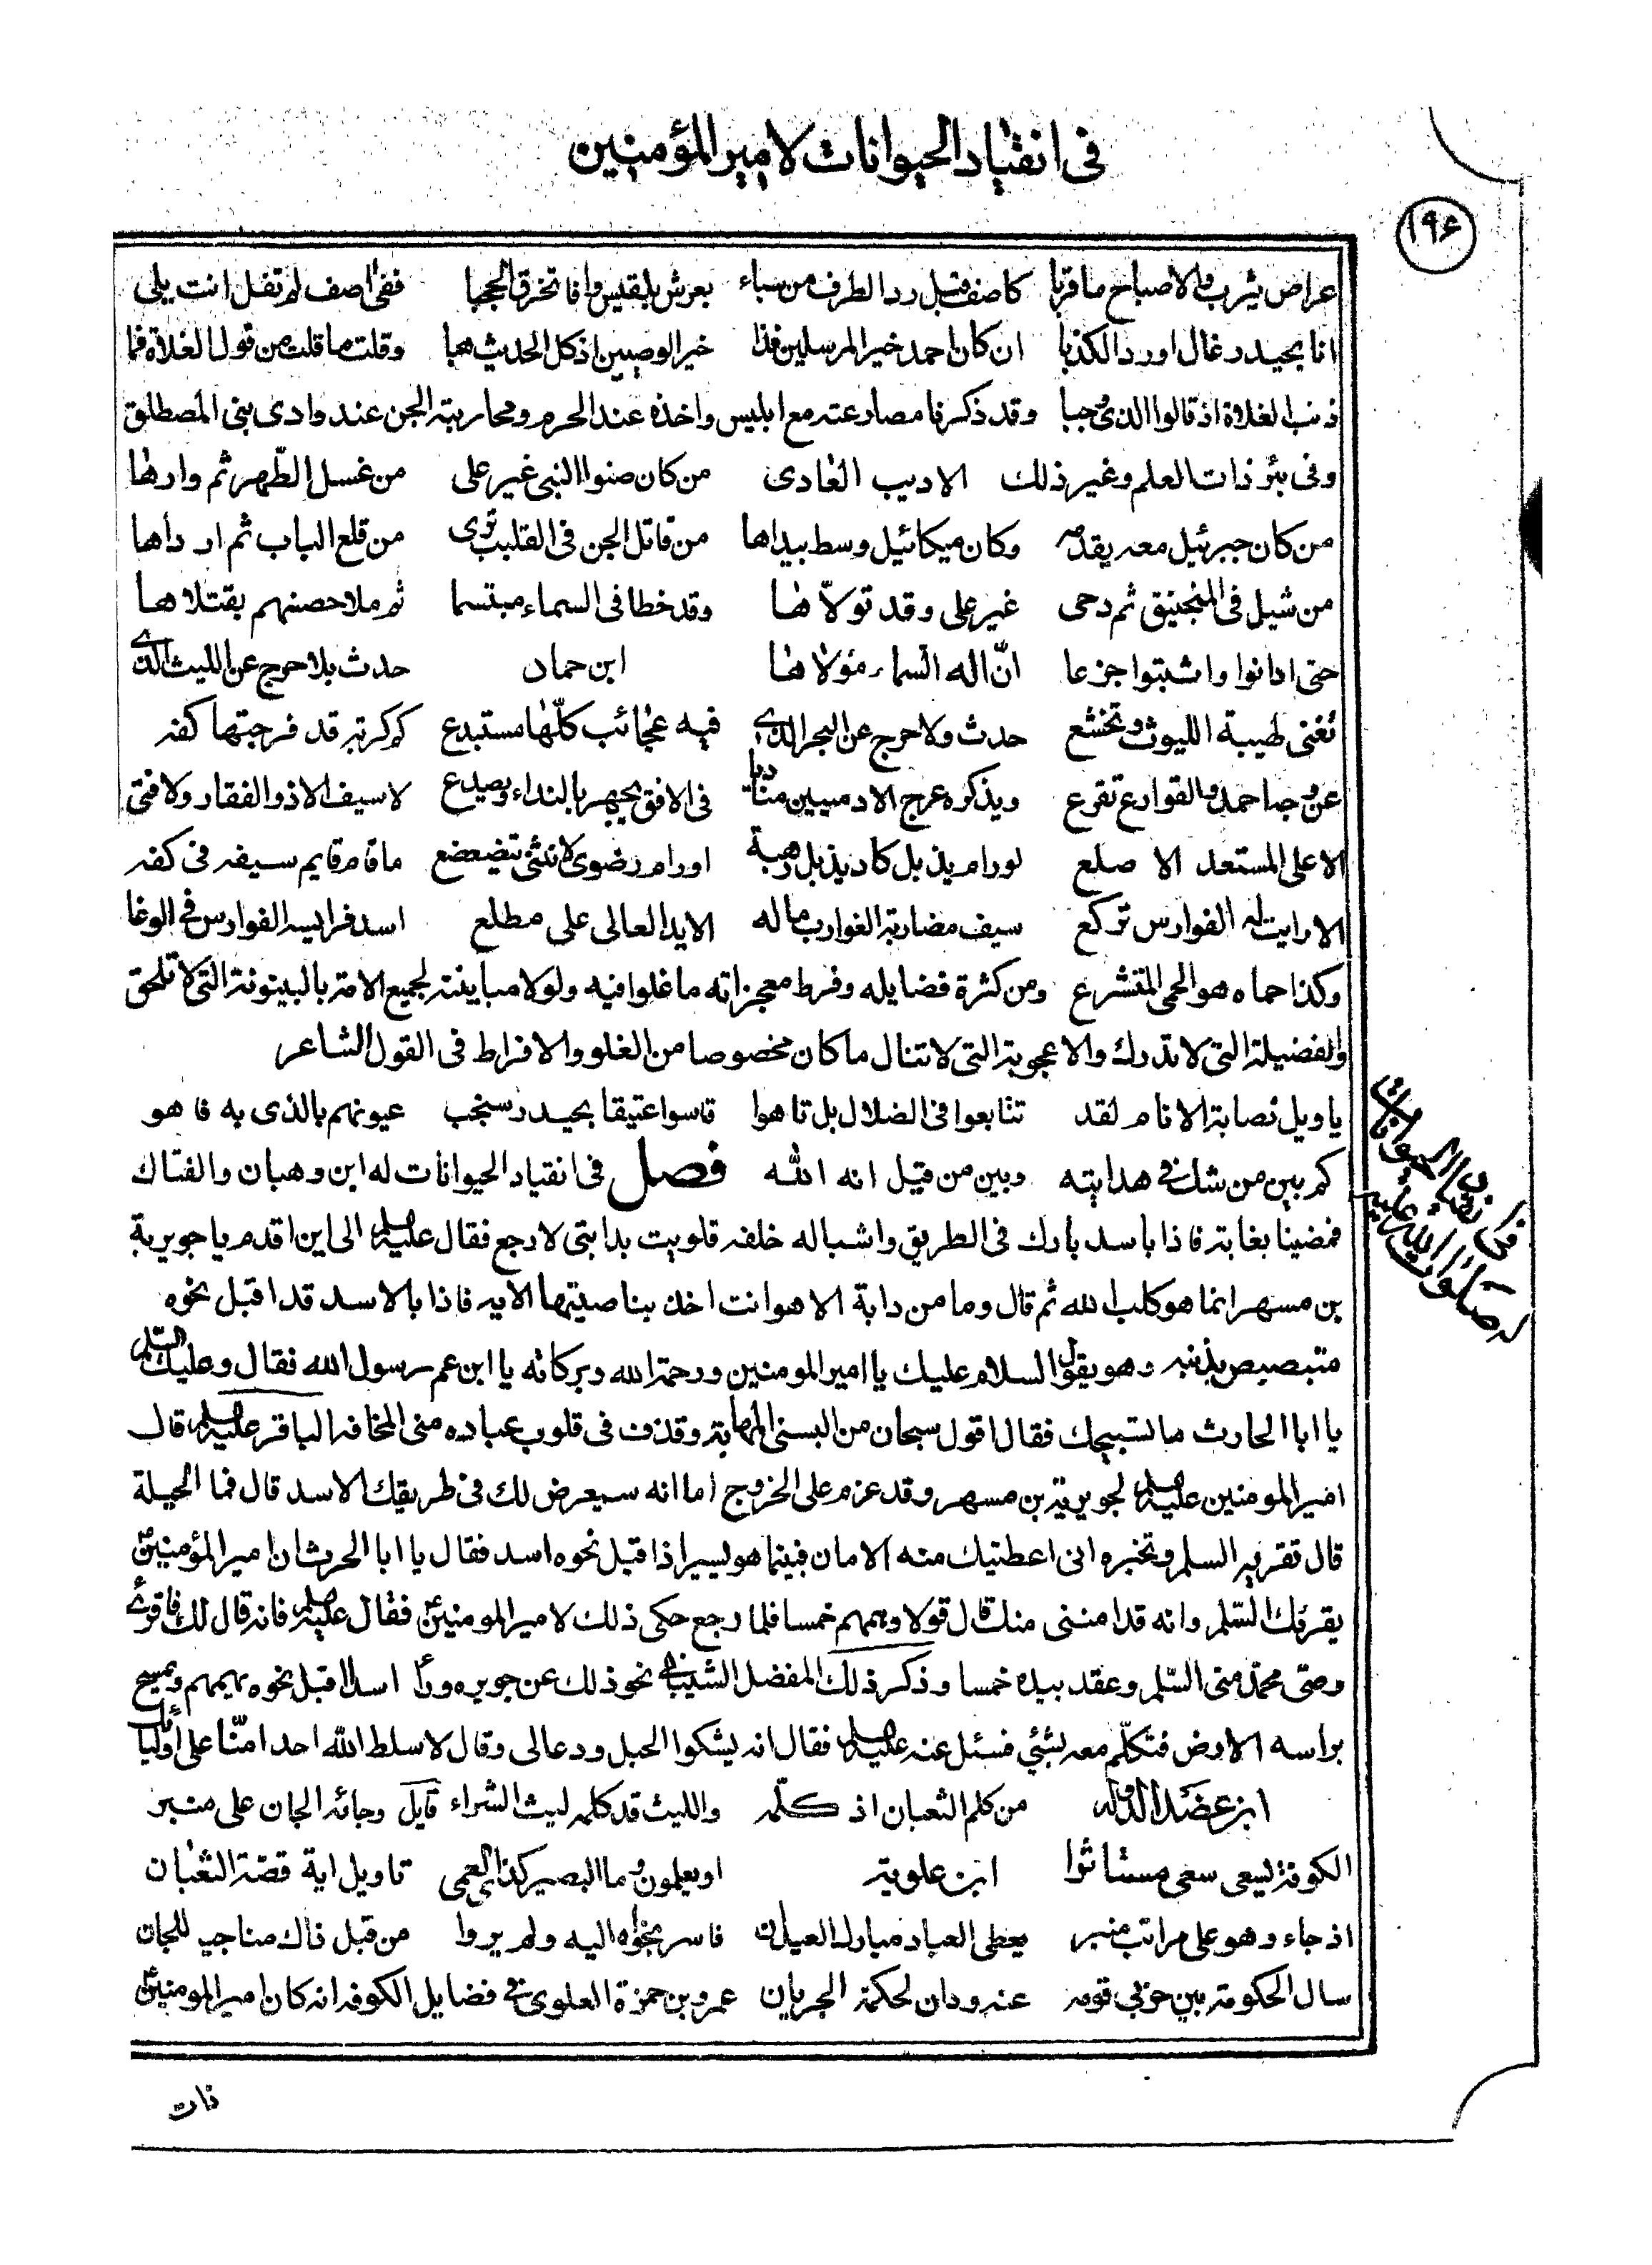 في انقياد الحيوانات لامير المؤمنين
۱۹۶
عراض يثرب والاصباح ما قربا كاصف قبل رد الطرف من سباء بعرش بلقيس وافا تخرق الحجبا ففي اصف لم تفل انت بلى
انا بحيدر غال اورد الكذبا ان كان احمد خير المرسلين فذا خير الوصيين اذ كل الحديث هبا وقلت ما قلت من قول الغلاة فما
ذنب الغلاة اذ قالوا الذي وجبا وقد ذكرنا مصارعته مع ابليس واخذه عند الحرم ومحاربته الجن عند وادي بني المصطلق
وفي بئر ذات العلم وغير ذلك الاديب العادى من كان صنوا النبي غير علي من غسل الطهر ثم وارها
من كان جبرئيل معه يقدمه وكان ميكائيل وسط بيداها من قاتل الجن في القليب ترى من قلع الباب ثم ار دأها
من شيل في المنجنيق ثم دحى غير علي وقد تولاها وقد خطا في السماء مبتسما ثم ملا حصنهم بقتلاها
حتى ادانوا واشبتوا جزعا ان اله السماء مولاها ابن حماد حدث بلا حرج عن الليث الذي
تغنى لهيبة الليوث وتخشع حدث ولا حرج عن البحر الذي فيه عجائب كلها مستبدع كم كربة قد فرجتها كفه
عن وجه احمد والقوارع تقرع ويذكره عرج الادميين مناديا في الافق يجهر بالنداء ويصدع لا سيف الا ذو الفقار ولا فتى
الا علي المستعد الا صلع لو رام يذبل كاد يذبل رهبة او رام رضوى لا نثنى يتضعضع ما قام قايم سيفه في كفه
الا رايت له الفوارس تركع سيف مضاربة الغوارب ماله الا يد العالى على مطلع اسد فرايسه الفوارس في الوغا
وكذا حماه هو الحمى المتشرع ومن كثرة فضايله وفرط معجزاته ما غلوا فيه ولولا مباينته لجميع الامة بالبينونة التي لا تلحق
والفضيلة التي لا تدرك والاعجوبة التي لا تنال ما كان مخصوصا من الغلو والافراط في القول الشاعر
يا ويل نصابة الانام لقد تتابعوا في الضلال بل تاهوا قاسوا عتيقا بحيدر سخجت عيونهم بالذى به فاهو
كم بين من شك في هدايته وبين من قيل انه الله فصل في انقياد الحيوانات له ابن وهبان والفتاك
فمضينا بغابة فاذا باسد بارك في الطريق واشباله خلفه فلويت بدابتي لارجع فقال عليه السلم الى اين اقدم يا جويرية
بن مسهر انما هو كلب الله ثم قال وما من دابة الا هو انت اخذ بناصيتها الايه فاذا بالاسد قد اقبل نحوه
متبصبص بذنبه وهو يقول السلام عليك يا امير المومنين ورحمة الله وبركاته يا ابن عم رسول الله فقال وعليك السلم
يا ابا الحارث ما تسبيحك فقال اقول سبحان من البسني المهابة وقذف في قلوب عباده مني المخافة الباقر عليه السلم قال
امير المومنين عليه السلم لجويرية بن مسهر وقد عزم على الخروج اما انه سيعرض لك في طريقك الاسد قال فما الحيلة
قال تقريه السلم وتخبره اني اعطيتك منه الامان فبينما هو يسير اذا قبل نحوه اسد فقال يا ابا الحرث ان امير المؤمنين ع
يقرئك السلم وانه قد امنني منك قال فولا وهمهم خمسا فلما رجع حكى ذلك لامير المومنين ع فقال عليه السلم فانه قال لك فاقرئ
وصي محمد مني السلم وعقد بيده خمسا وذكر ذلك المفضل الشيباني نحو ذلك عن جويره ورأ اسدا اقبل نحوه يهمهم ويمسح
براسه الارض فتكلم معه بشئي فسئل عنه عليه السلم فقال انه يشكوا الحبل ودعا لى وقال لا سلط الله احدا منا على اوليائك
ابن عضد الدوله من كلم الثعبان اذ كلمه والليث قد كلمه ليث الشراء قايل وجائه الجان على منبر
الكوفة يسعى سعى مستاثرا ابن علوية او يعلمون وما البصير كذي العمى تاويل اية قصة الثعبان
اذ جاء وهو على مراتب منبر يعظي العباد مبارك العيدان فاسر نجواه اليه ولم يروا من قبل ذاك مناجي للجان
سال الحكومة بين حزبي قومه عنه ودان لحكمة الجريان عمرو بن حمزة العلوي في فضايل الكوفه انه كان امير المومنين ع
ذات